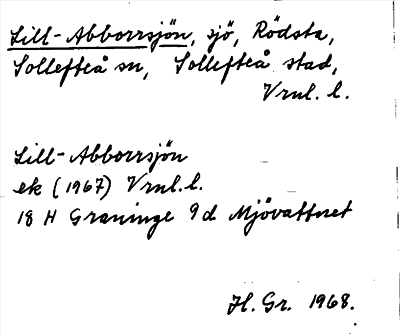 Lill-Abborrsjön, sjö, Rödsta,
Sollefteå sn, Sollefteå stad,
Vrnl. l.
Lill-Abborrsjön
ek (1967) Vrnl. l.
18 H Graninge 9d Mjövattnet
H. Gr. 1968.